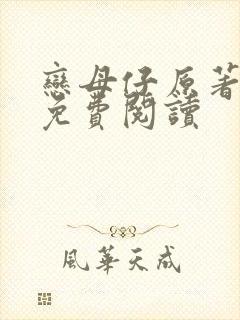 戀母仔原著
免費閱讀
風華天成